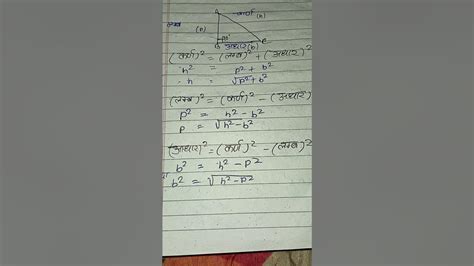 A
कर्ण (h)
लम्ब
(p)
90°
B आधार (b) C
(कर्ण)² = (लम्ब)² + (आधार)²
h² = p² + b²
h = √p² + b²
(लम्ब)² = (कर्ण)² - (आधार)²
p² = h² - b²
p = √h² - b²
(आधार)² = (कर्ण)² - (लम्ब)²
b² = h² - p²
b² = √h² - p²